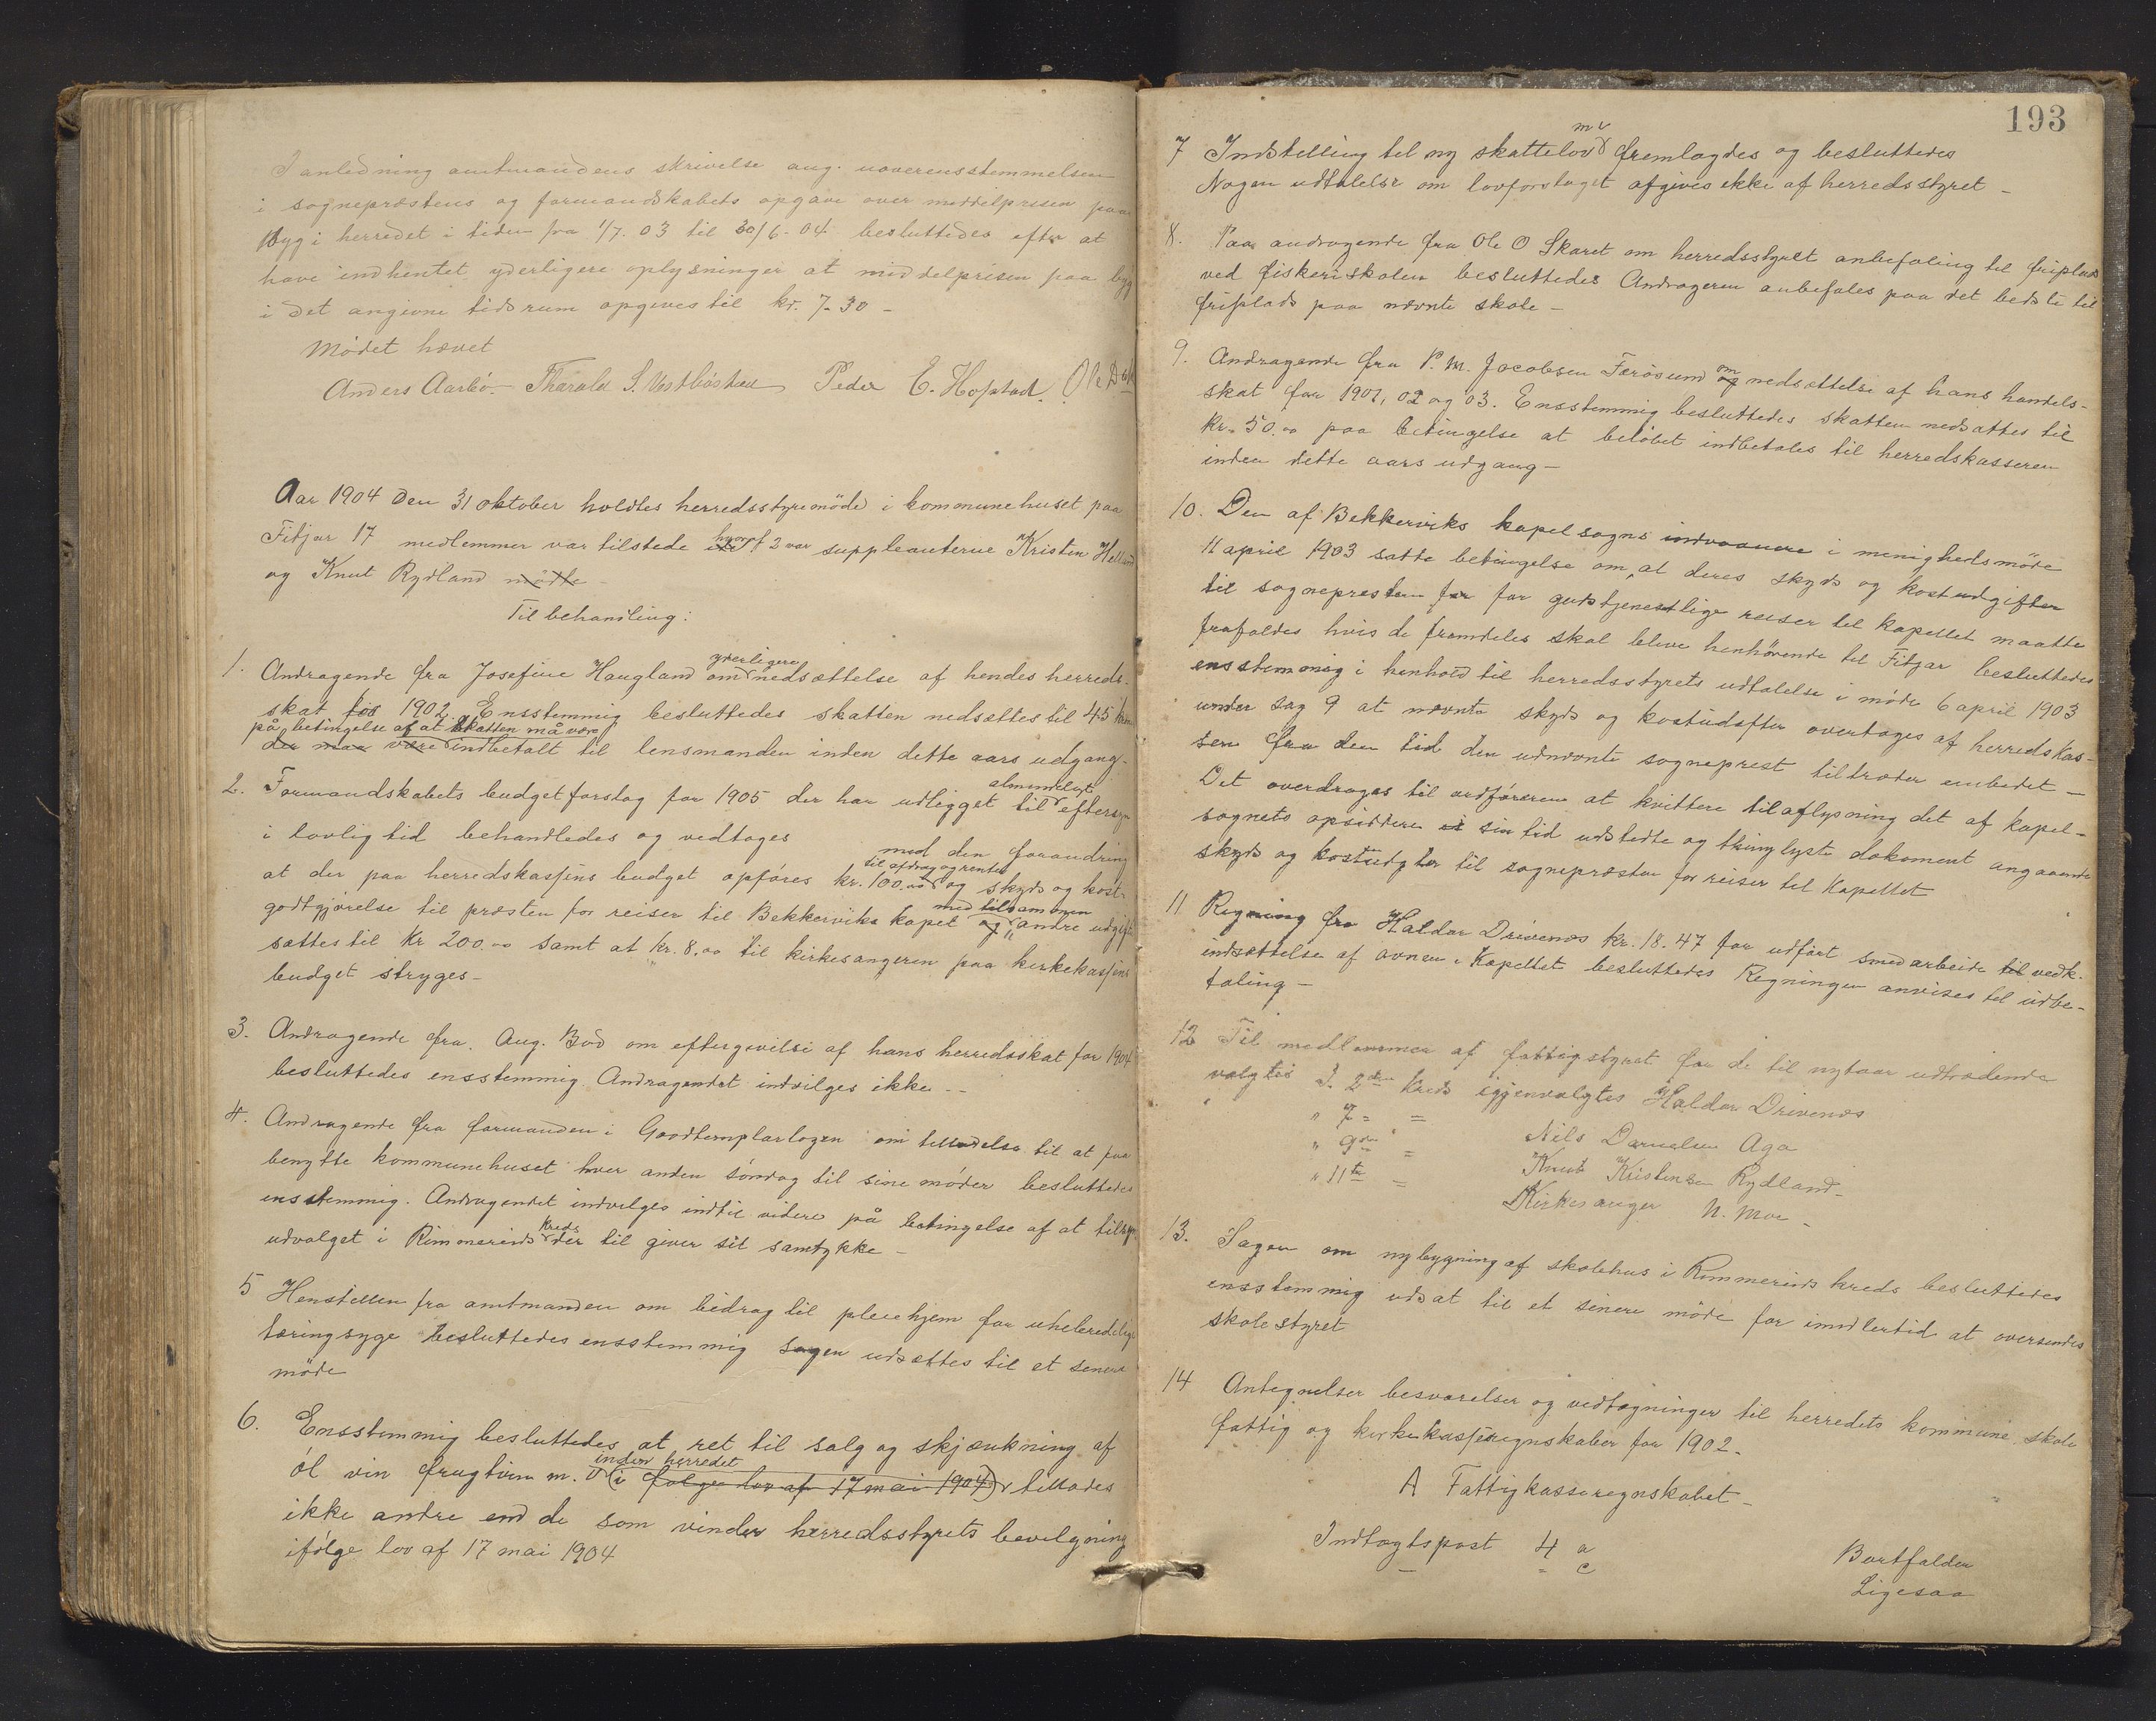 I anledning amtmandens skrivelse ang. uoverensstemmelsen
i sogneprestens og formandskabets opgave over middelprisen paa
byg i herredet i tiden fra 1/7. 03 til 30/6-04 besluttedes efter at
have indhentet yderligere oplysninger at middelprisen paa byg
i det angivne tidsrum opgives til kr. 7-30 -
Mødet hævet
Anders Aarbø. Tharald S. Vestbøstad Peder E. Hopstad. Ole
Aar 1904 den 31 oktober holdtes herredsstyremöde i kommunehuset paa
Fitjar 17 medlemmer var tilstede hvoraf 2 var suppleanterne Kristen Helland
og Knut Rydland mödte -
Til behandling:
1. Andragende fra Josefine Haugland om yderligere nedsættelse af hendes herreds-
skat for 1902. Ensstemmig besluttedes skatten nedsættes til 45 kr
på betingelse af at skatten må være
der maa være indbetalt til lensmanden inden dette aars udgang-
2. Formandskabets budgetforslag for 1905 der har udligget til almindeligt eftersyn
i lovlig tid behandledes og vedtoges
med den forandring
at der paa herredskassens budget opføres kr. 100.00 til afdrag og renter og skyds og kost-
godtgjørelse til præsten for reiser til Bekkerviks kapel og med tilsammen andre udgifter
sættes til kr 200.00 samt at kr. 8.00 til kirkesangeren paa kirkekassens
budget stryges-
3. Andragende fra. Aug. Bød om eftergivelse af hans herredsskat for 1904
besluttedes ensstemmig Andragendet indvilges ikke --
4. Andragende fra formanden i Goodtemplarlogen om tilladelse til at faa
benytte kommunehuset hver anden söndag til sine möder besluttedes
ensstemmig. Andragendet indvilges indtil videre på betingelse af at tilsyns
udvalget i Rimmereids kreds der til giver sit samtykke -
5 Henstillen fra amtmanden om bidrag til pleiehjem for uhelbredelige
tæringsyge besluttedes ensstemmig sagen udsættes til et senere
möde
6. Ensstemmig besluttedes at ret til salg og skjænkning af
öl vin frugtvin m. v inden herredet (i følge lov af 17 mai 1904) tillades
ikke andre end de som vinder herredsstyrets bevilgning
ifölge lov af 17 mai 1904
193
7 Indstilling til ny skattelov m v fremlagdes og besluttedes
Nogen udtalelse om lovforslaget afgives ikke af herredsstyret -
8. Paa andragende fra Ole O Skaret om herredsstyret anbefaling til friplads
ved fiskeriskolen besluttedes Andrageren anbefales paa det bedste til
friplads paa nævnte skole -
9. Andragende fra P. M. Jacobsen Færøsund om og nedsættelse af hans handels-
skat for 1901, 02 og 03. Ensstemmig besluttedes skatten nedsættes til
kr. 50.00 paa betingelse at beløbet indbetales til herredskasseren
inden dette aars udgang -
10. Den af Bekkerviks kapelsogns indvaanere i menighedsmøde
11 april 1903 satte betingelse om, at deres skyds og kostudgifter
til sognepresten for for gudstjenestlige reiser til kapellet maatte
frafaldes hvis de fremdeles skal blive henhörende til Fitjar besluttedes
ensstemmig i henhold til herredsstyrets udtalelse i møde 6 april 1903
under sag 9 at nævnte skyds og kostudgifter overtages af herredskas-
sen fra den tid den udnævnte sogneprest tiltræder embedet -
Det overdrages til ordføreren at kvittere til aflysning det af kapel-
sognets opsiddere i sin tid udstedte og thinglyste dokument angaaende
skyds og kostudgter til sognepræsten for reiser til Kapellet
11 Regning fra Haldor Drivenes kr. 18.47 for udfört smedarbeide til vedk.
indsættelse af ovnen i Kapellet besluttedes Regningen anvises til udbe-
taling -
12 Til medlemmer af fattigstyret for de til nytaar udtrædende
valgtes I. 2den kreds igjenvalgtes Haldor Drivenes
" 7 = = Nils Danielsen Aga
" 9de = Knut Kristensen Rydland-
" 11te = Kirkesanger N. Moe -
13. Sagen om nybygning af skolehus i Rimmereids kreds besluttedes
ensstemmig udsat til et senere möde for imidlertid at oversendes
skolestyret
14 Antegnelser besvarelser og vedtegninger til herredets kommune skole
fattig og kirkekasseregnskaber for 1902-
A Fattigkasseregnskabet -
Indtægtspost 4 a Bortfalder
- = c Ligesaa